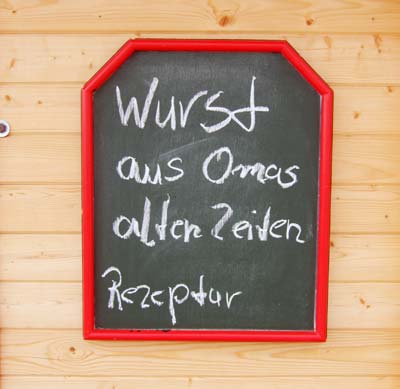 Wurst
aus Omas
alten Zeiten
Rezeptur